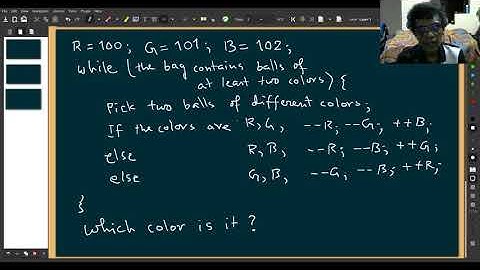 R = 100; G = 101; B = 102;
while (the bag contains balls of
at least two colors) {
Pick two balls of different colors;
If the colors are R,G, --R; --G; ++B;
else R,B, --R; --B; ++G;
else G,B, --G; --B; ++R;
}
Which color is it?